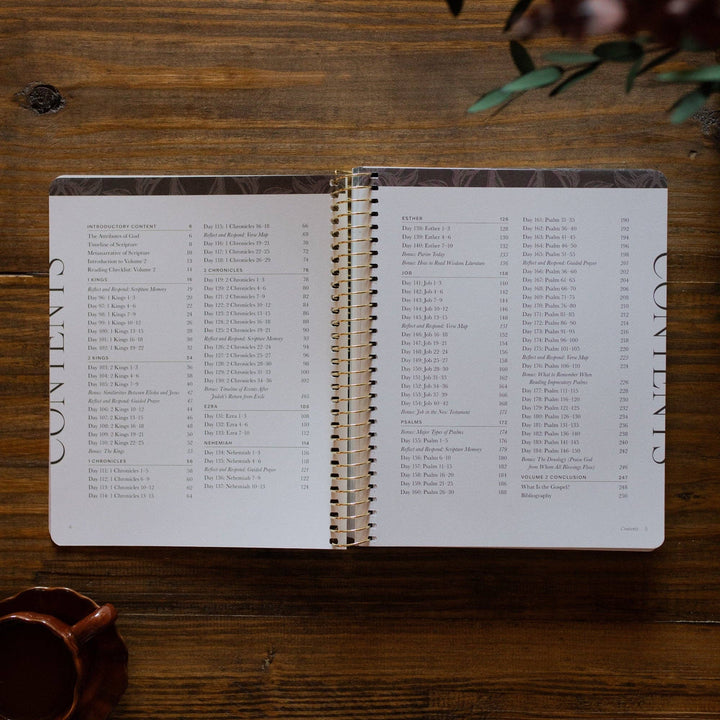 CONTENTS
INTRODUCTORY CONTENT 6
The Attributes of God 6
Timeline of Scripture 8
Metanarrative of Scripture 10
Introduction to Volume 2 11
Reading Checklist: Volume 2 14
1 KINGS 16
Reflect and Respond: Scripture Memory 19
Day 96: 1 Kings 1–3 20
Day 97: 1 Kings 4–6 22
Day 98: 1 Kings 7–9 24
Day 99: 1 Kings 10–12 26
Day 100: 1 Kings 13–15 28
Day 101: 1 Kings 16–18 30
Day 102: 1 Kings 19–22 32
2 KINGS 34
Day 103: 2 Kings 1–3 36
Day 104: 2 Kings 4–6 38
Day 105: 2 Kings 7–9 40
Bonus: Similarities Between Elisha and Jesus 42
Reflect and Respond: Guided Prayer 43
Day 106: 2 Kings 10–12 44
Day 107: 2 Kings 13–15 46
Day 108: 2 Kings 16–18 48
Day 109: 2 Kings 19–21 50
Day 110: 2 Kings 22–25 52
Bonus: The Kings 55
1 CHRONICLES 56
Day 111: 1 Chronicles 1–5 58
Day 112: 1 Chronicles 6–9 60
Day 113: 1 Chronicles 10–12 62
Day 114: 1 Chronicles 13–15 64
Day 115: 1 Chronicles 16–18 66
Reflect and Respond: Verse Map 69
Day 116: 1 Chronicles 19–21 70
Day 117: 1 Chronicles 22–25 72
Day 118: 1 Chronicles 26–29 74
2 CHRONICLES 76
Day 119: 2 Chronicles 1–3 78
Day 120: 2 Chronicles 4–6 80
Day 121: 2 Chronicles 7–9 82
Day 122: 2 Chronicles 10–12 84
Day 123: 2 Chronicles 13–15 86
Day 124: 2 Chronicles 16–18 88
Day 125: 2 Chronicles 19–21 90
Reflect and Respond: Scripture Memory 93
Day 126: 2 Chronicles 22–24 94
Day 127: 2 Chronicles 25–27 96
Day 128: 2 Chronicles 28–30 98
Day 129: 2 Chronicles 31–33 100
Day 130: 2 Chronicles 34–36 102
Bonus: Timeline of Events After
Judah's Return from Exile 105
EZRA 106
Day 131: Ezra 1–3 108
Day 132: Ezra 4–6 110
Day 133: Ezra 7–10 112
NEHEMIAH 114
Day 134: Nehemiah 1–3 116
Day 135: Nehemiah 4–6 118
Reflect and Respond: Guided Prayer 121
Day 136: Nehemiah 7–9 122
Day 137: Nehemiah 10–13 124
4
ESTHER 126
Day 138: Esther 1–3 128
Day 139: Esther 4–6 130
Day 140: Esther 7–10 132
Bonus: Purim Today 135
Bonus: How to Read Wisdom Literature 136
JOB 138
Day 141: Job 1–3 140
Day 142: Job 4–6 142
Day 143: Job 7–9 144
Day 144: Job 10–12 146
Day 145: Job 13–15 148
Reflect and Respond: Verse Map 151
Day 146: Job 16–18 152
Day 147: Job 19–21 154
Day 148: Job 22–24 156
Day 149: Job 25–27 158
Day 150: Job 28–30 160
Day 151: Job 31–33 162
Day 152: Job 34–36 164
Day 153: Job 37–39 166
Day 154: Job 40–42 168
Bonus: Job in the New Testament 171
PSALMS 172
Bonus: Major Types of Psalms 174
Day 155: Psalm 1–5 176
Reflect and Respond: Scripture Memory 179
Day 156: Psalm 6–10 180
Day 157: Psalm 11–15 182
Day 158: Psalm 16–20 184
Day 159: Psalm 21–25 186
Day 160: Psalm 26–30 188
Day 161: Psalm 31–35 190
Day 162: Psalm 36–40 192
Day 163: Psalm 41–45 194
Day 164: Psalm 46–50 196
Day 165: Psalm 51–55 198
Reflect and Respond: Guided Prayer 201
Day 166: Psalm 56–60 202
Day 167: Psalm 61–65 204
Day 168: Psalm 66–70 206
Day 169: Psalm 71–75 208
Day 170: Psalm 76–80 210
Day 171: Psalm 81–85 212
Day 172: Psalm 86–90 214
Day 173: Psalm 91–95 216
Day 174: Psalm 96–100 218
Day 175: Psalm 101–105 220
Reflect and Respond: Verse Map 223
Day 176: Psalm 106–110 224
Bonus: What to Remember When
Reading Imprecatory Psalms 226
Day 177: Psalm 111–115 228
Day 178: Psalm 116–120 230
Day 179: Psalm 121–125 232
Day 180: Psalm 126–130 234
Day 181: Psalm 131–135 236
Day 182: Psalm 136–140 238
Day 183: Psalm 141–145 240
Day 184: Psalm 146–150 242
Bonus: The Doxology (Praise God
from Whom All Blessings Flow) 246
VOLUME 2 CONCLUSION 247
What Is the Gospel? 248
Bibliography 250
Contents 5
CONTENTS